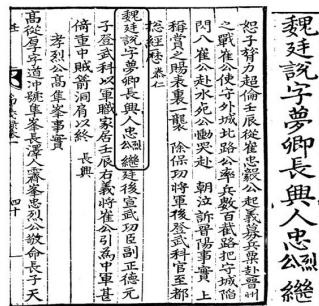 魏廷說字夢卿長興人忠烈公繼
恕子膂力超倫壬辰從崔忠毅公起義募兵粟赴晉州
之戰崔公使守外城北路公率兵數百截路把守城陷
門入崔公赴水死公慟哭赴 朝泣訴晉陽事實
稱賞之賜表裏一襲 除保功將軍後登武科官至都
摠經歷 泰仁
魏廷說字夢卿長興人忠烈公繼廷後宣武功臣副正德元
子登武科以軍職家居壬辰右義將崔公引為中軍甚
倚重中賊箭洞肩以終 長興
孝烈公高隼峯事實
高從厚字道冲號隼峯長澤人霽峯忠烈公敬命長子天